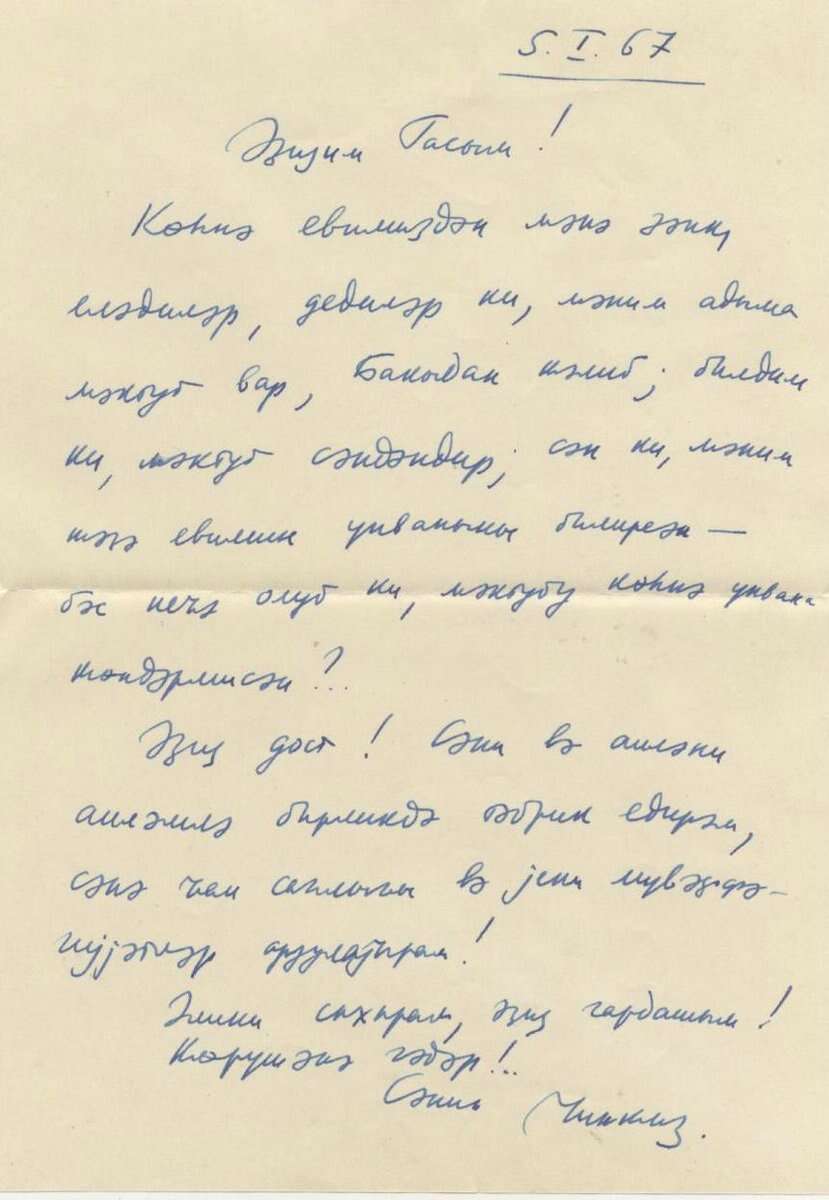 5.I.67
Әзизим Гасым!
Көһнә евимиздән мәнә зәнк
еләдиләр, дедиләр ки, мәним адыма
мәктуб вар, Бакыдан ҝәлиб; билдим
ки, мәктуб сәндәндир; сән ки, мәним
тәзә евимин үнваныны билирсән —
бәс нечә олуб ки, мәктубу көһнә үнвана
ҝөндәрмисән?..
Әзиз дост! Сәни вә аиләни
аиләмлә бирликдә тәбрик едирәм,
сәнә ҹан сағлығы вә јени мүвәффә-
гијәтләр арзулајырам!
Әлини сыхырам, әзиз гардашым!
Ҝөрүшәнә гәдәр!..
Сәнин Чинҝиз.